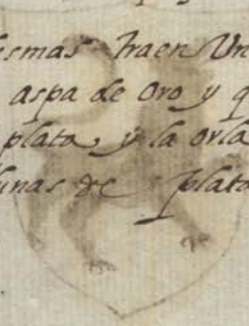 esmas traen Un
aspa de oro y q
plata, y la orla
lunas de plata